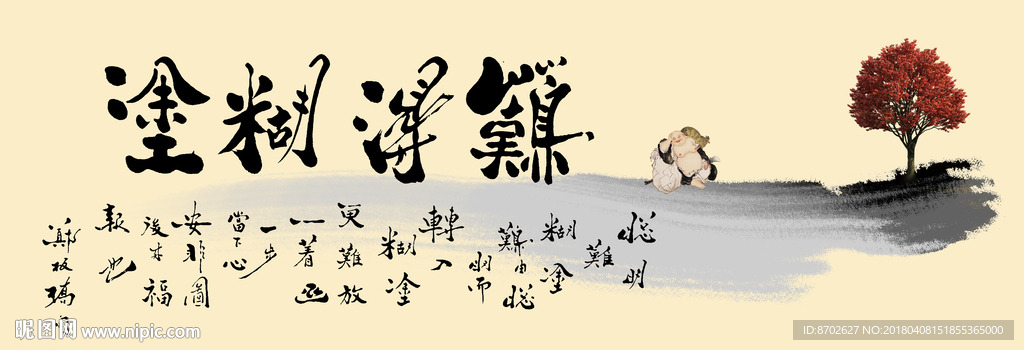 難得糊塗
聰明
難
糊塗
難由聰
明而
轉入
糊塗
更難放
一着退
一步
當下心
安非圖
後来福
報也
鄭板橋
昵图网 www.nipic.com
ID:8702627 NO:20180408151855365000